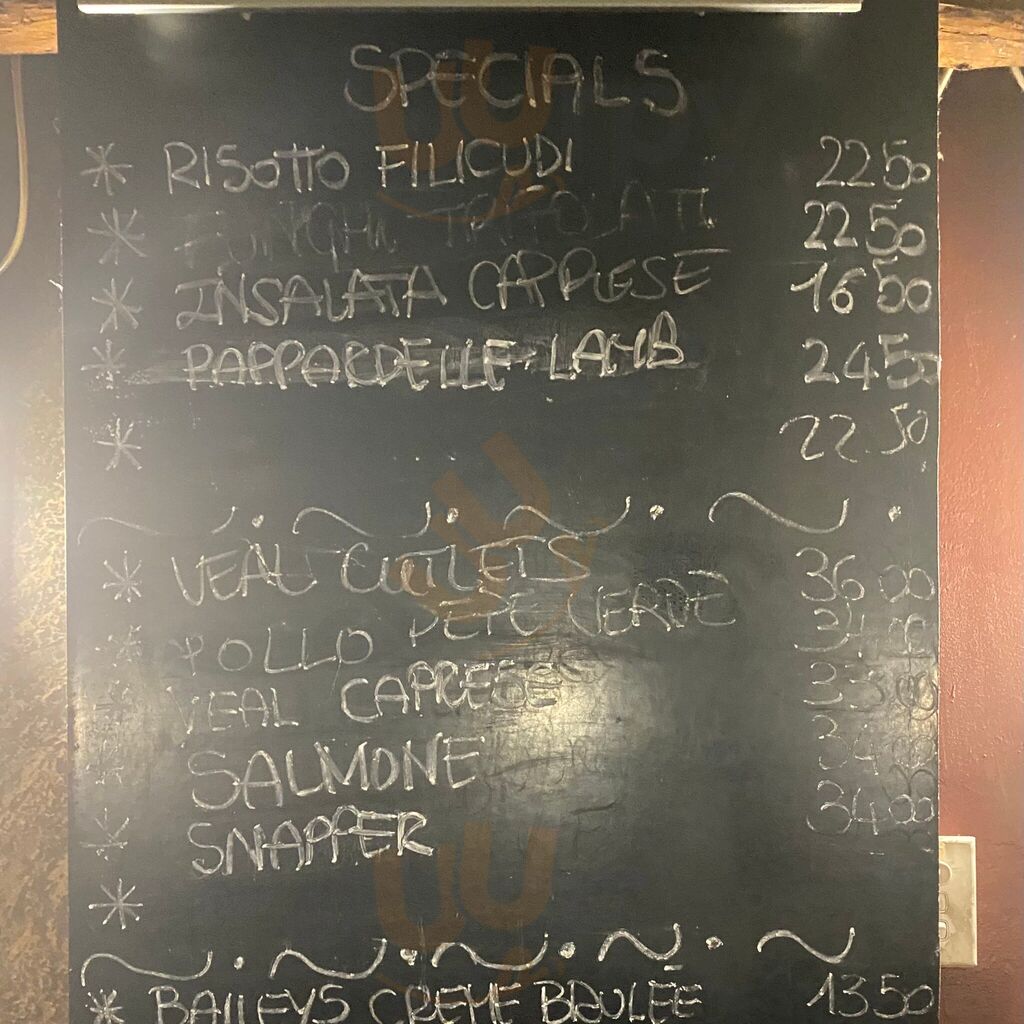 SPECIALS
* RISOTTO FILICUDI 22 50
* FUNGHI TRIFOLATI 22 50
* INSALATA CAPRESE 16 50
* PAPPARDELLE LAMB 24 50
* 22 50
* VEAL CUTLETS 36 00
* POLLO PEPE VERDE 34 00
* VEAL CAPRESE 33 00
* SALMONE 34 00
* SNAPPER 34 00
*
* BAILEYS CREME BRULÉE 13 50